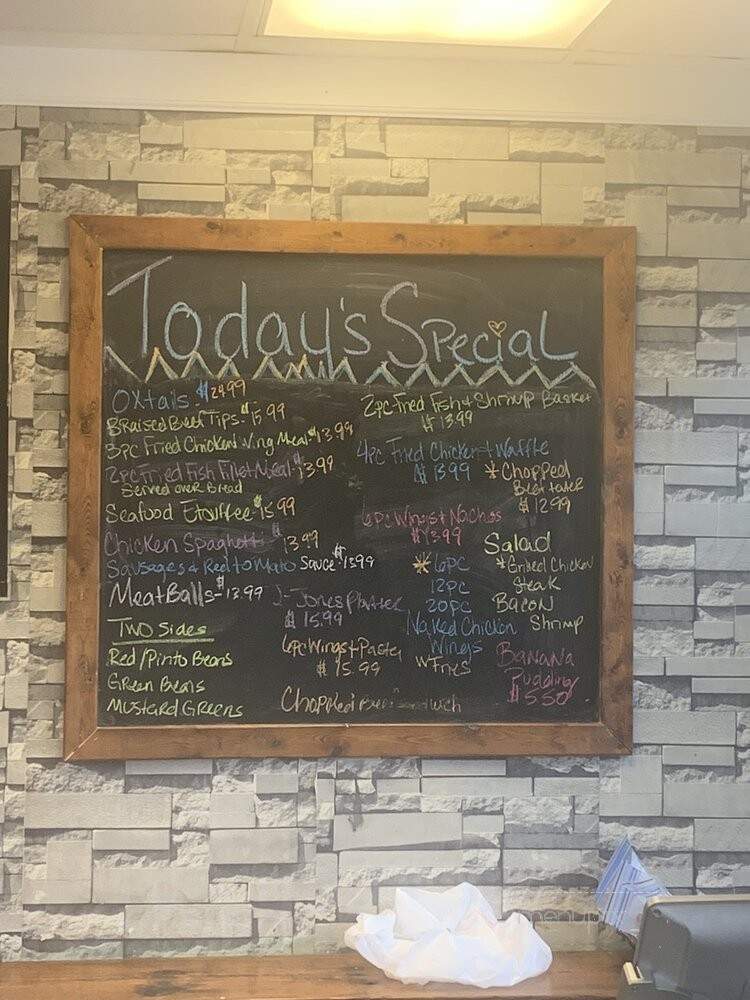 Today's Special
Oxtails $24.99
Braised Beef Tips $15.99
3pc Fried Chicken Wing Meal $13.99
2pc Fried Fish Fillet Meal $13.99
Served over Bread
Seafood Etouffee $15.99
Chicken Spaghetti 13.99
Sausages & Red tomato Sauce $13.99
MeatBalls $13.99
Two Sides
Red/Pinto Beans
Green Beans
Mustard Greens
2pc Fried Fish & Shrimp Basket
$13.99
4pc Fried Chicken & Waffle
$13.99
*Chopped
Beef tater
$12.99
6pc Wings & Nachos
$13.99
J-Jones Platter
$15.99
6pc Wings & Pasta
$15.99
Chopped Beef Sandwich
*6pc
12pc
20pc
Naked Chicken
Wings
w Fries
Salad
*Grilled Chicken
Steak
Bacon
Shrimp
Banana
Pudding
$5.50